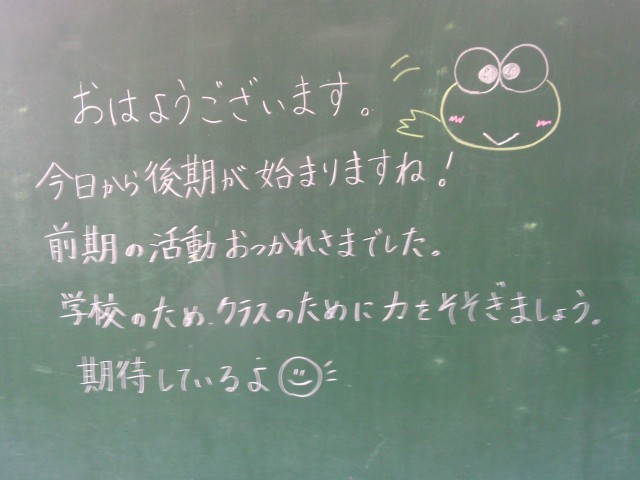 おはようございます。
今日から後期が始まりますね!
前期の活動おつかれさまでした。
学校のため、クラスのために力をそそぎましょう。
期待しているよ